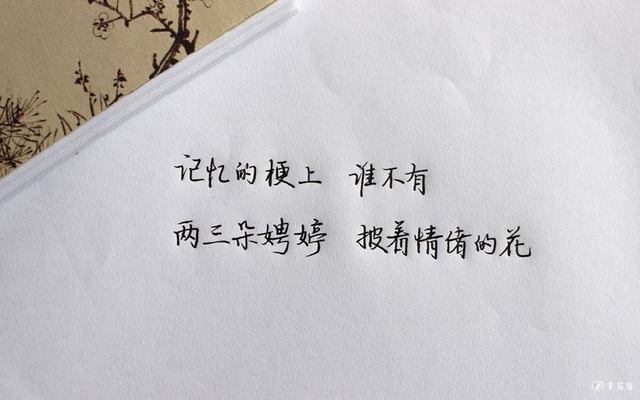 记忆的梗上 谁不有
两三朵娉婷 披着情绪的花
手写报